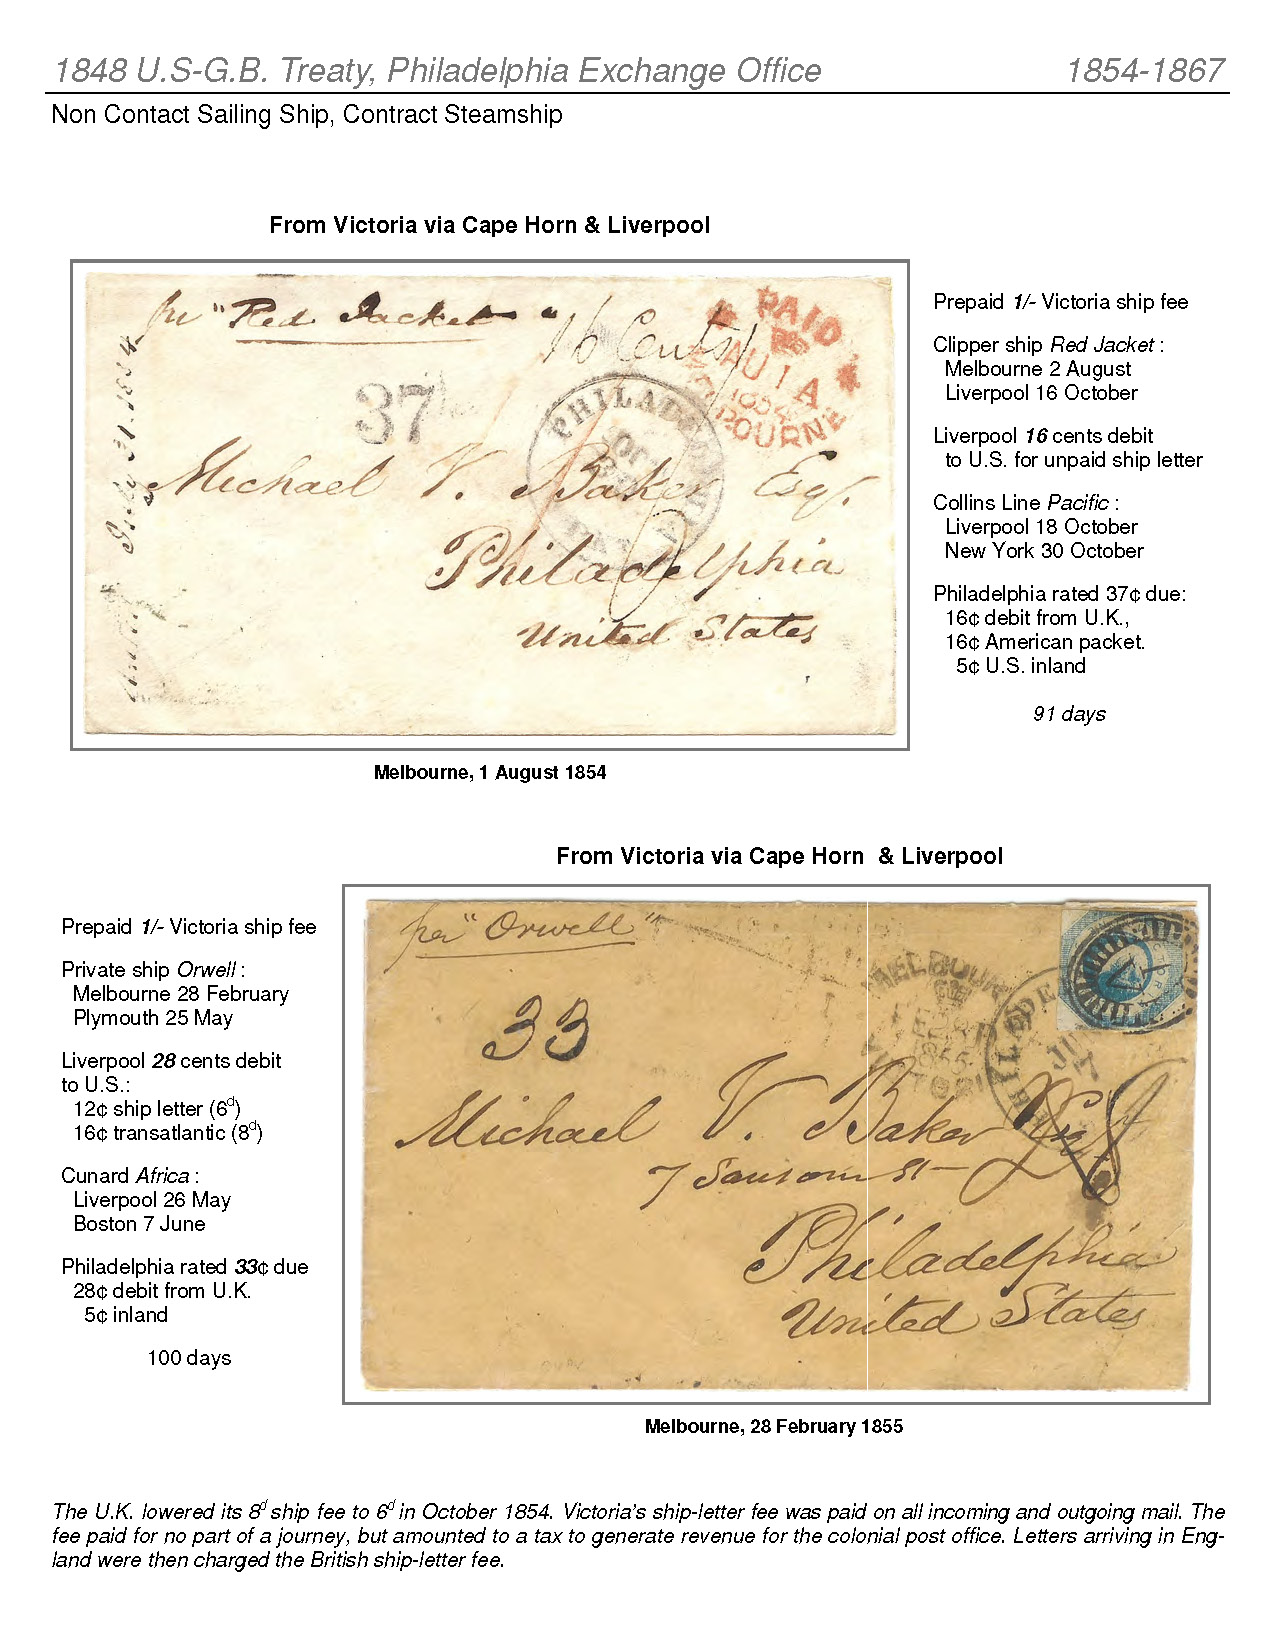 1848 U.S-G.B. Treaty, Philadelphia Exchange Office 1854-1867
Non Contact Sailing Ship, Contract Steamship
From Victoria via Cape Horn & Liverpool
per "Red Jacket"
16 Cents
PAID
AU 1 A
1854
MELBOURNE
37
PHILADELPHIA
July 31. 1854
Michael V. Baker Esqr.
Philadelphia
United States
Prepaid 1/- Victoria ship fee
Clipper ship Red Jacket :
Melbourne 2 August
Liverpool 16 October
Liverpool 16 cents debit
to U.S. for unpaid ship letter
Collins Line Pacific :
Liverpool 18 October
New York 30 October
Philadelphia rated 37¢ due:
16¢ debit from U.K.,
16¢ American packet.
5¢ U.S. inland
91 days
Melbourne, 1 August 1854
From Victoria via Cape Horn & Liverpool
Prepaid 1/- Victoria ship fee
Private ship Orwell :
Melbourne 28 February
Plymouth 25 May
Liverpool 28 cents debit
to U.S.:
12¢ ship letter (6d)
16¢ transatlantic (8d)
Cunard Africa :
Liverpool 26 May
Boston 7 June
Philadelphia rated 33¢ due
28¢ debit from U.K.
5¢ inland
100 days
per "Orwell"
33
1855
7
Michael V. Baker
7 Sansom St
Philadelphia
United States
Melbourne, 28 February 1855
The U.K. lowered its 8d ship fee to 6d in October 1854. Victoria's ship-letter fee was paid on all incoming and outgoing mail. The
fee paid for no part of a journey, but amounted to a tax to generate revenue for the colonial post office. Letters arriving in Eng-
land were then charged the British ship-letter fee.